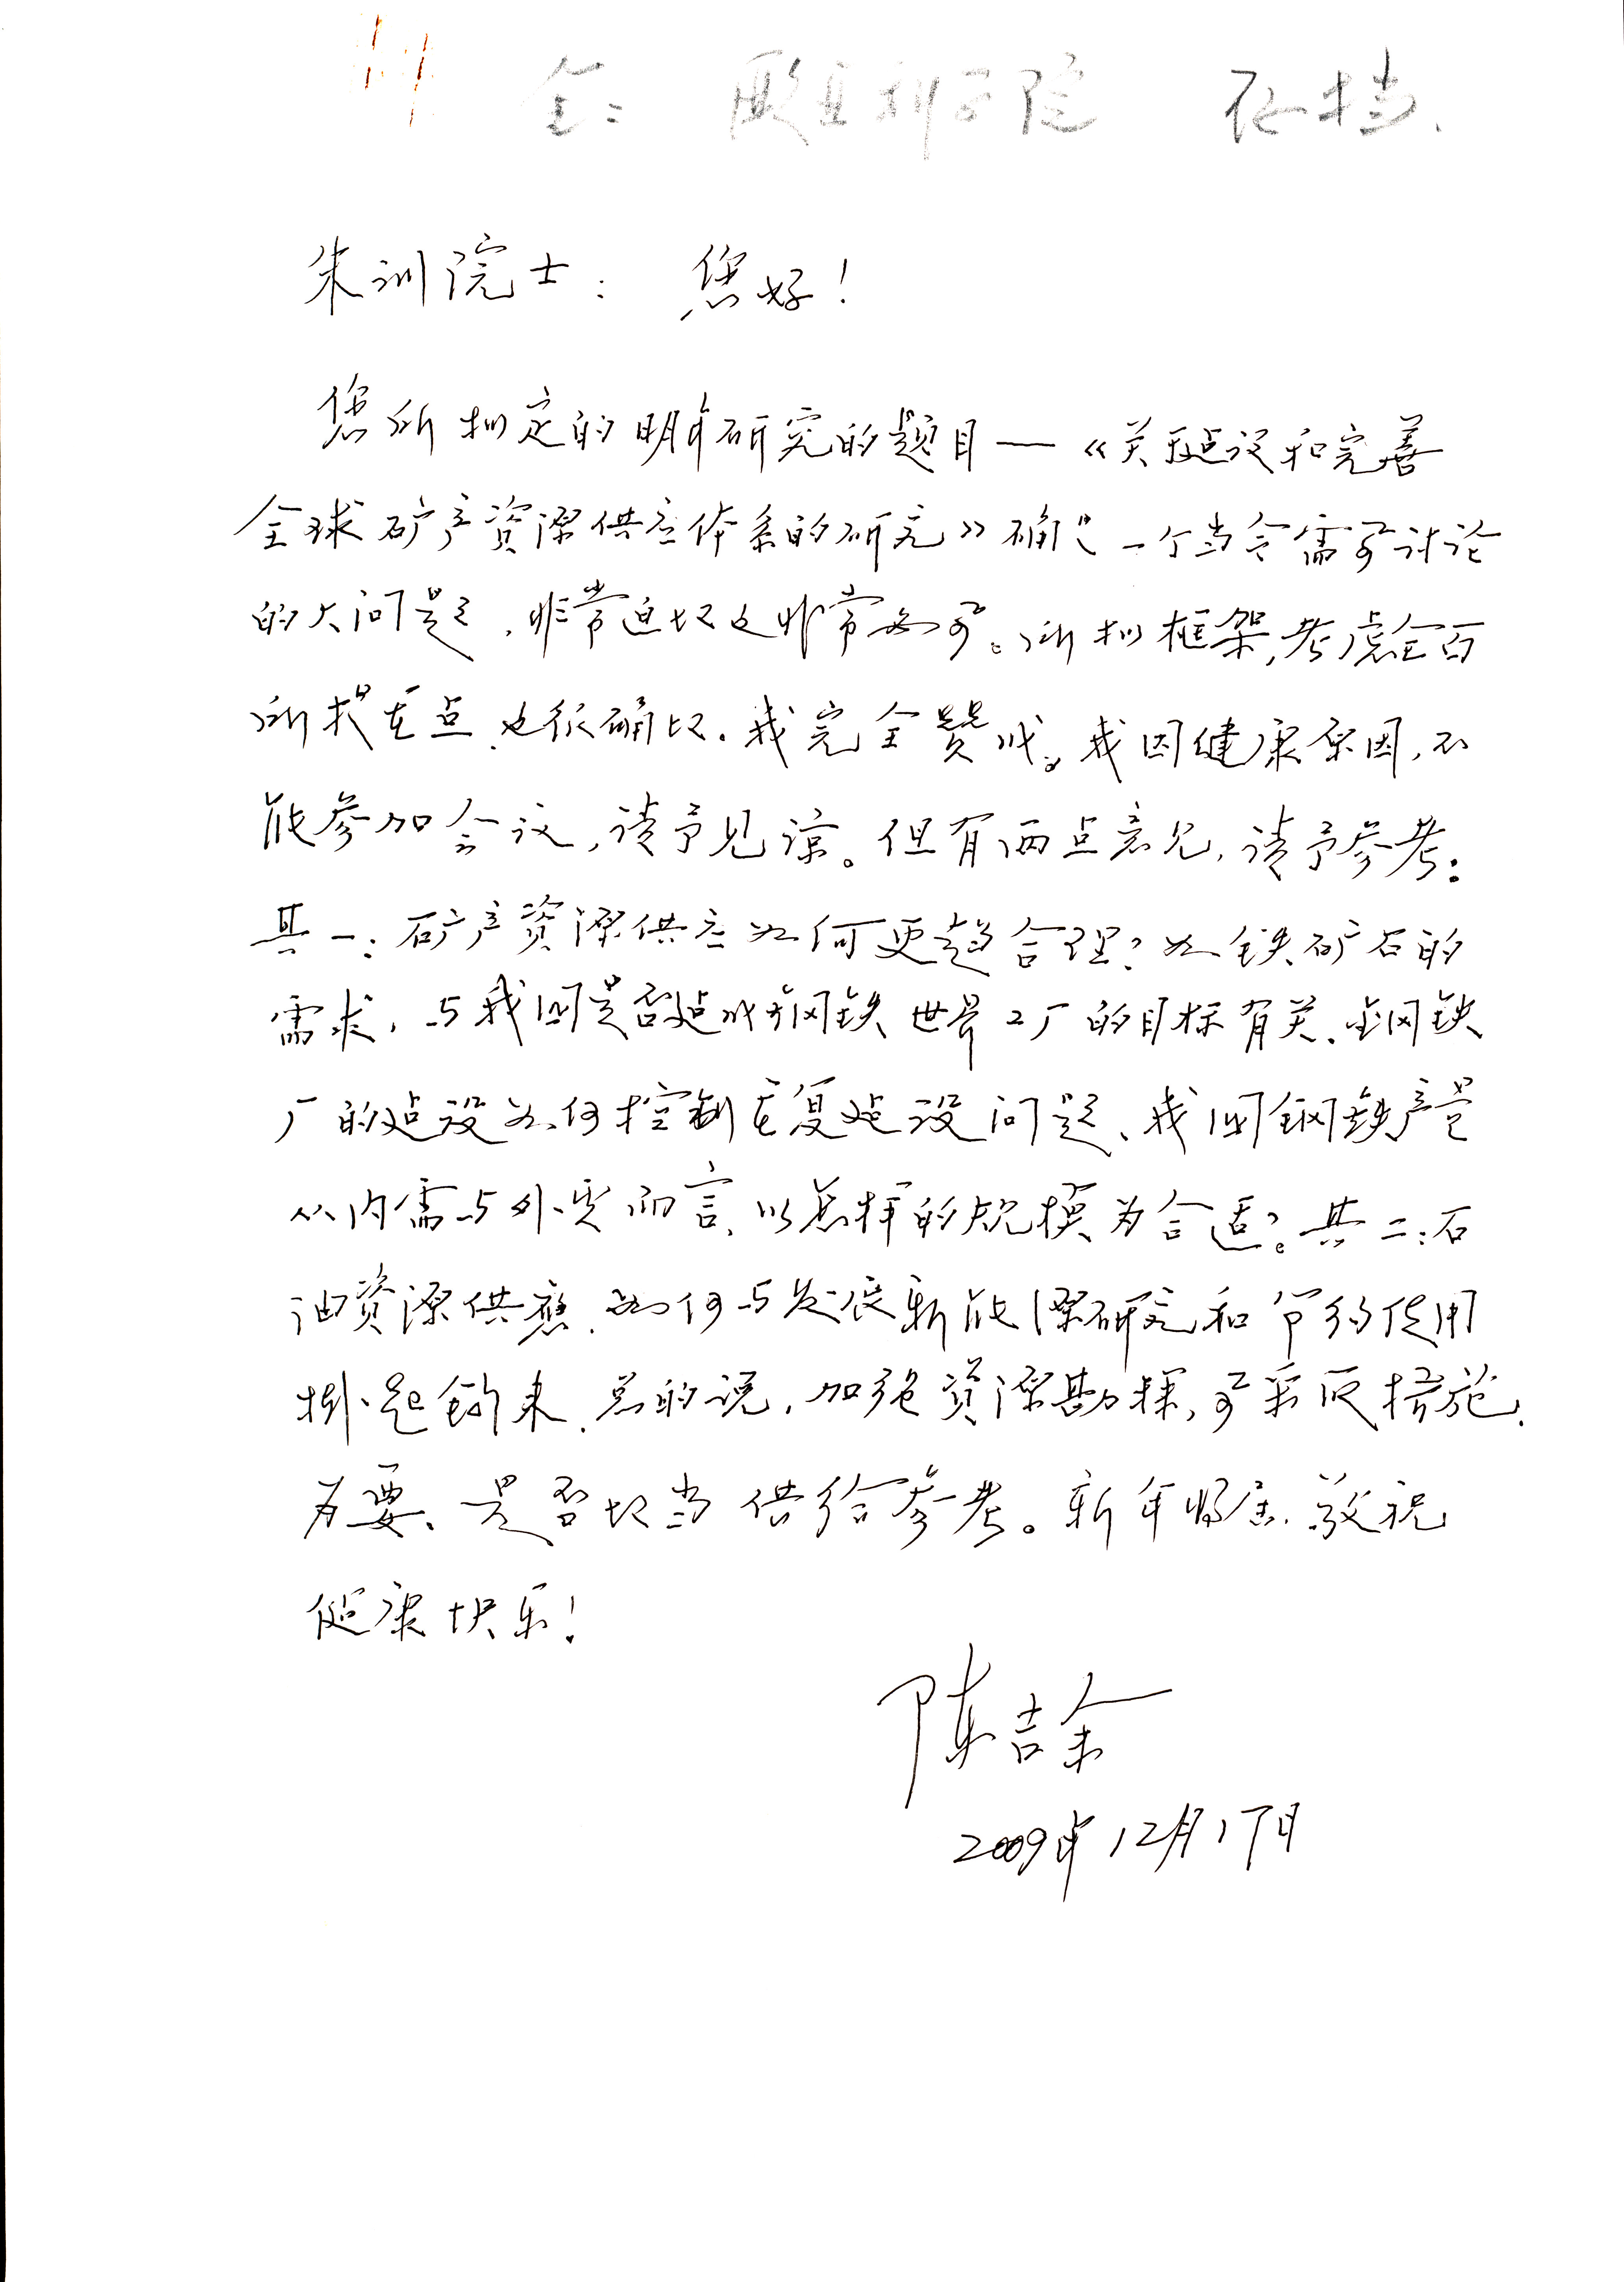 金: 欧亚科学院 存档.
朱训院士: 您好!
您所拟定的明年研究的题目—《关于建设和完善
全球矿产資源供应体系的研究》确是一个当今需要讨论
的大问题,非常迫切又非常必要。所拟框架,考虑全面
所提重点、也很确切.我完全赞成。我因健康原因,不
能参加会议,请予见谅。但有两点意见,请予参考:
其一:矿产資源供应如何更趋合理?如铁矿石的
需求,与我国是否建成钢铁世界工厂的目标有关.钢铁
厂的建设如何控制重复建设问题、我国钢铁产量
从内需与外贸而言、以怎样的规模为合适?其二:石
油資源供應、如何与发展新能源研究和节约使用
挂起鈎来.总的说,加强資源勘探,要采取措施.
为要、是否切当供给参考。新年将届.敬祝
健康快乐!
陈吉余
2009年12月17日